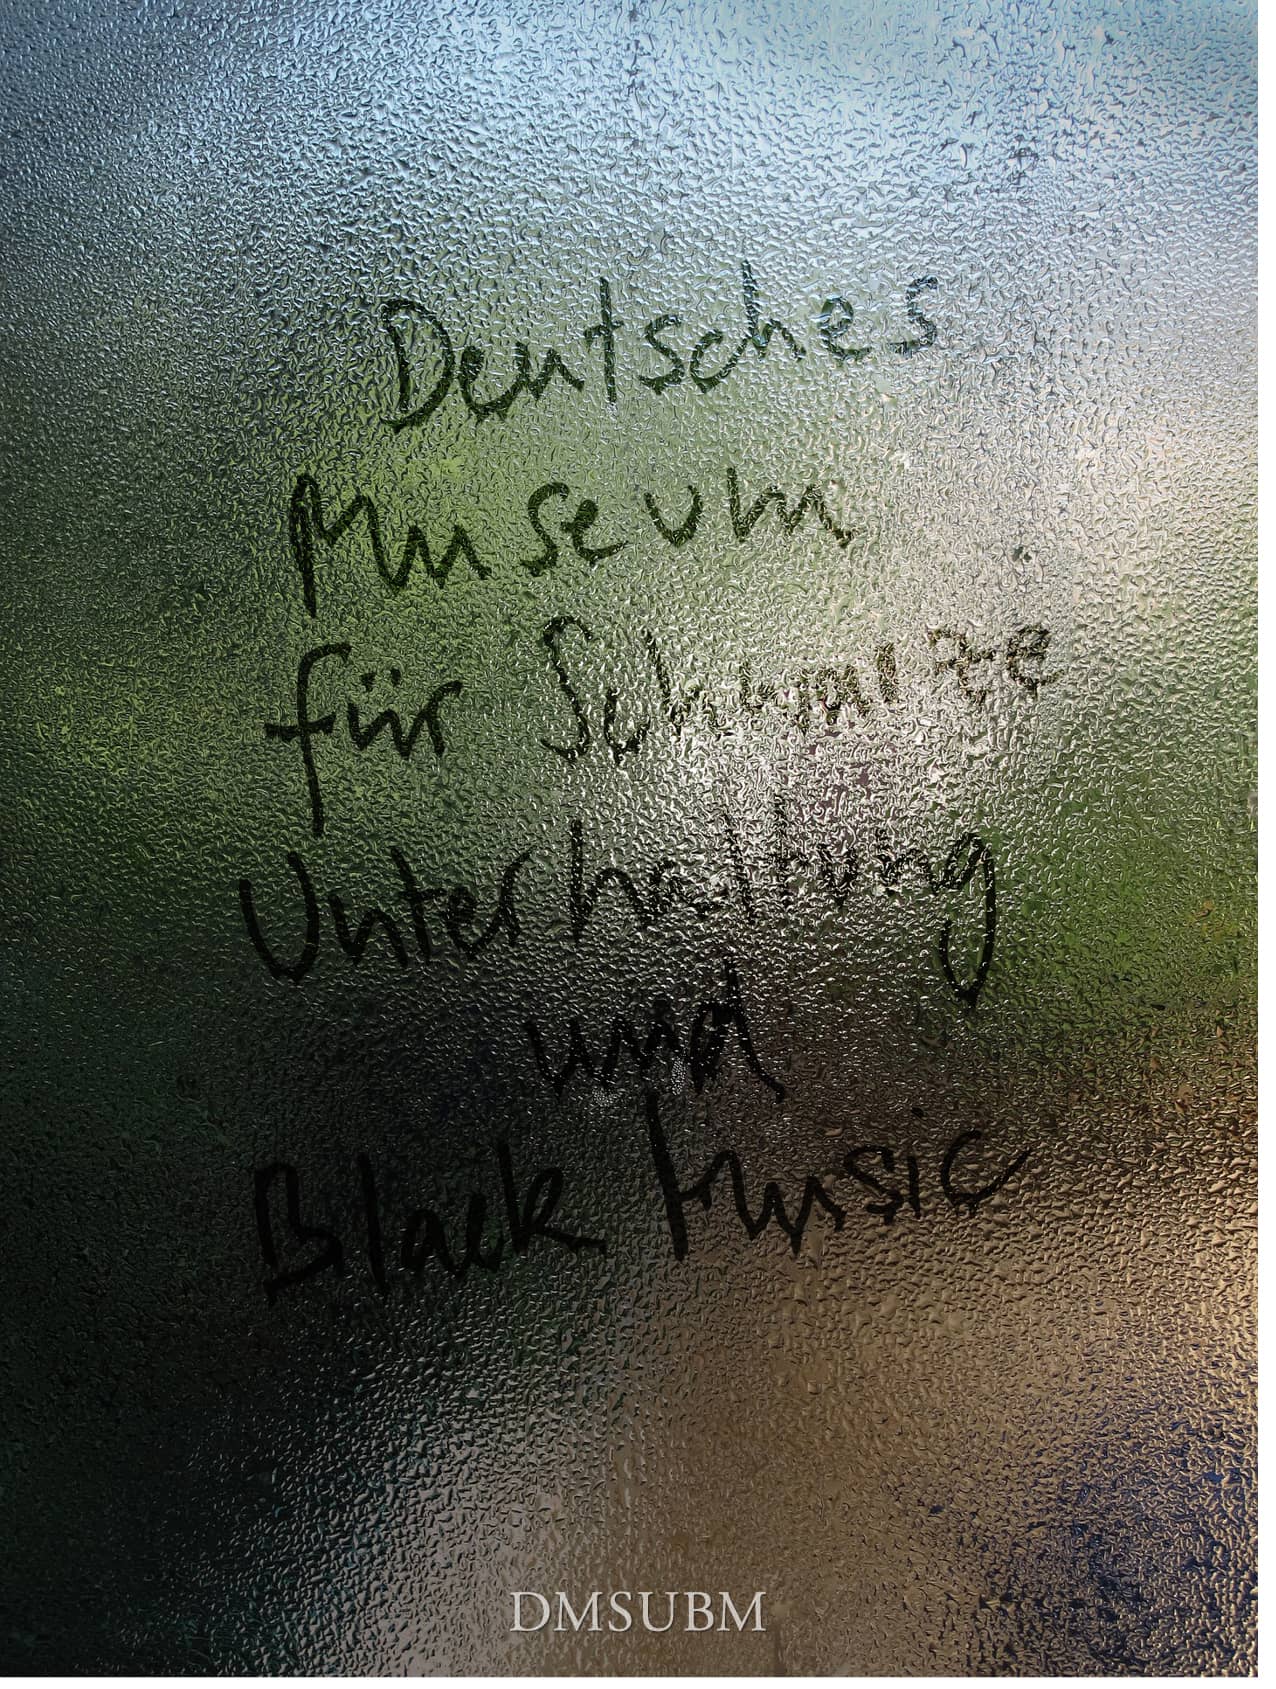 Deutsches
Museum
für Schwarze
Unterhaltung
und
Black Music
DMSUBM